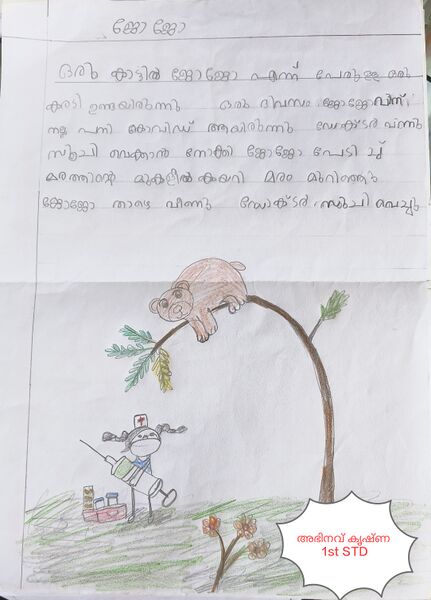 ജോ ജോ
ഒരു കാട്ടിൽ ജോജോ എന്ന് പേരുള്ള ഒരു
കരടി ഉണ്ടയിരുന്നു ഒരു ദിവസം ജോജോവിന്
നല്ല പനി കോവിഡ് ആയിരുന്നു ഡോക്ടർ വന്നു
സൂചി വെക്കാൻ നോക്കി ജോജോ പേടി ച്ച്
മരത്തിന്റെ മുകളിൽ കയറി മരം മുറിഞ്ഞു
ജോജോ താഴെ വീണു ഡോക്ടർ സൂചി വെച്ചു
അഭിനവ് കൃഷ്ണ
1st STD